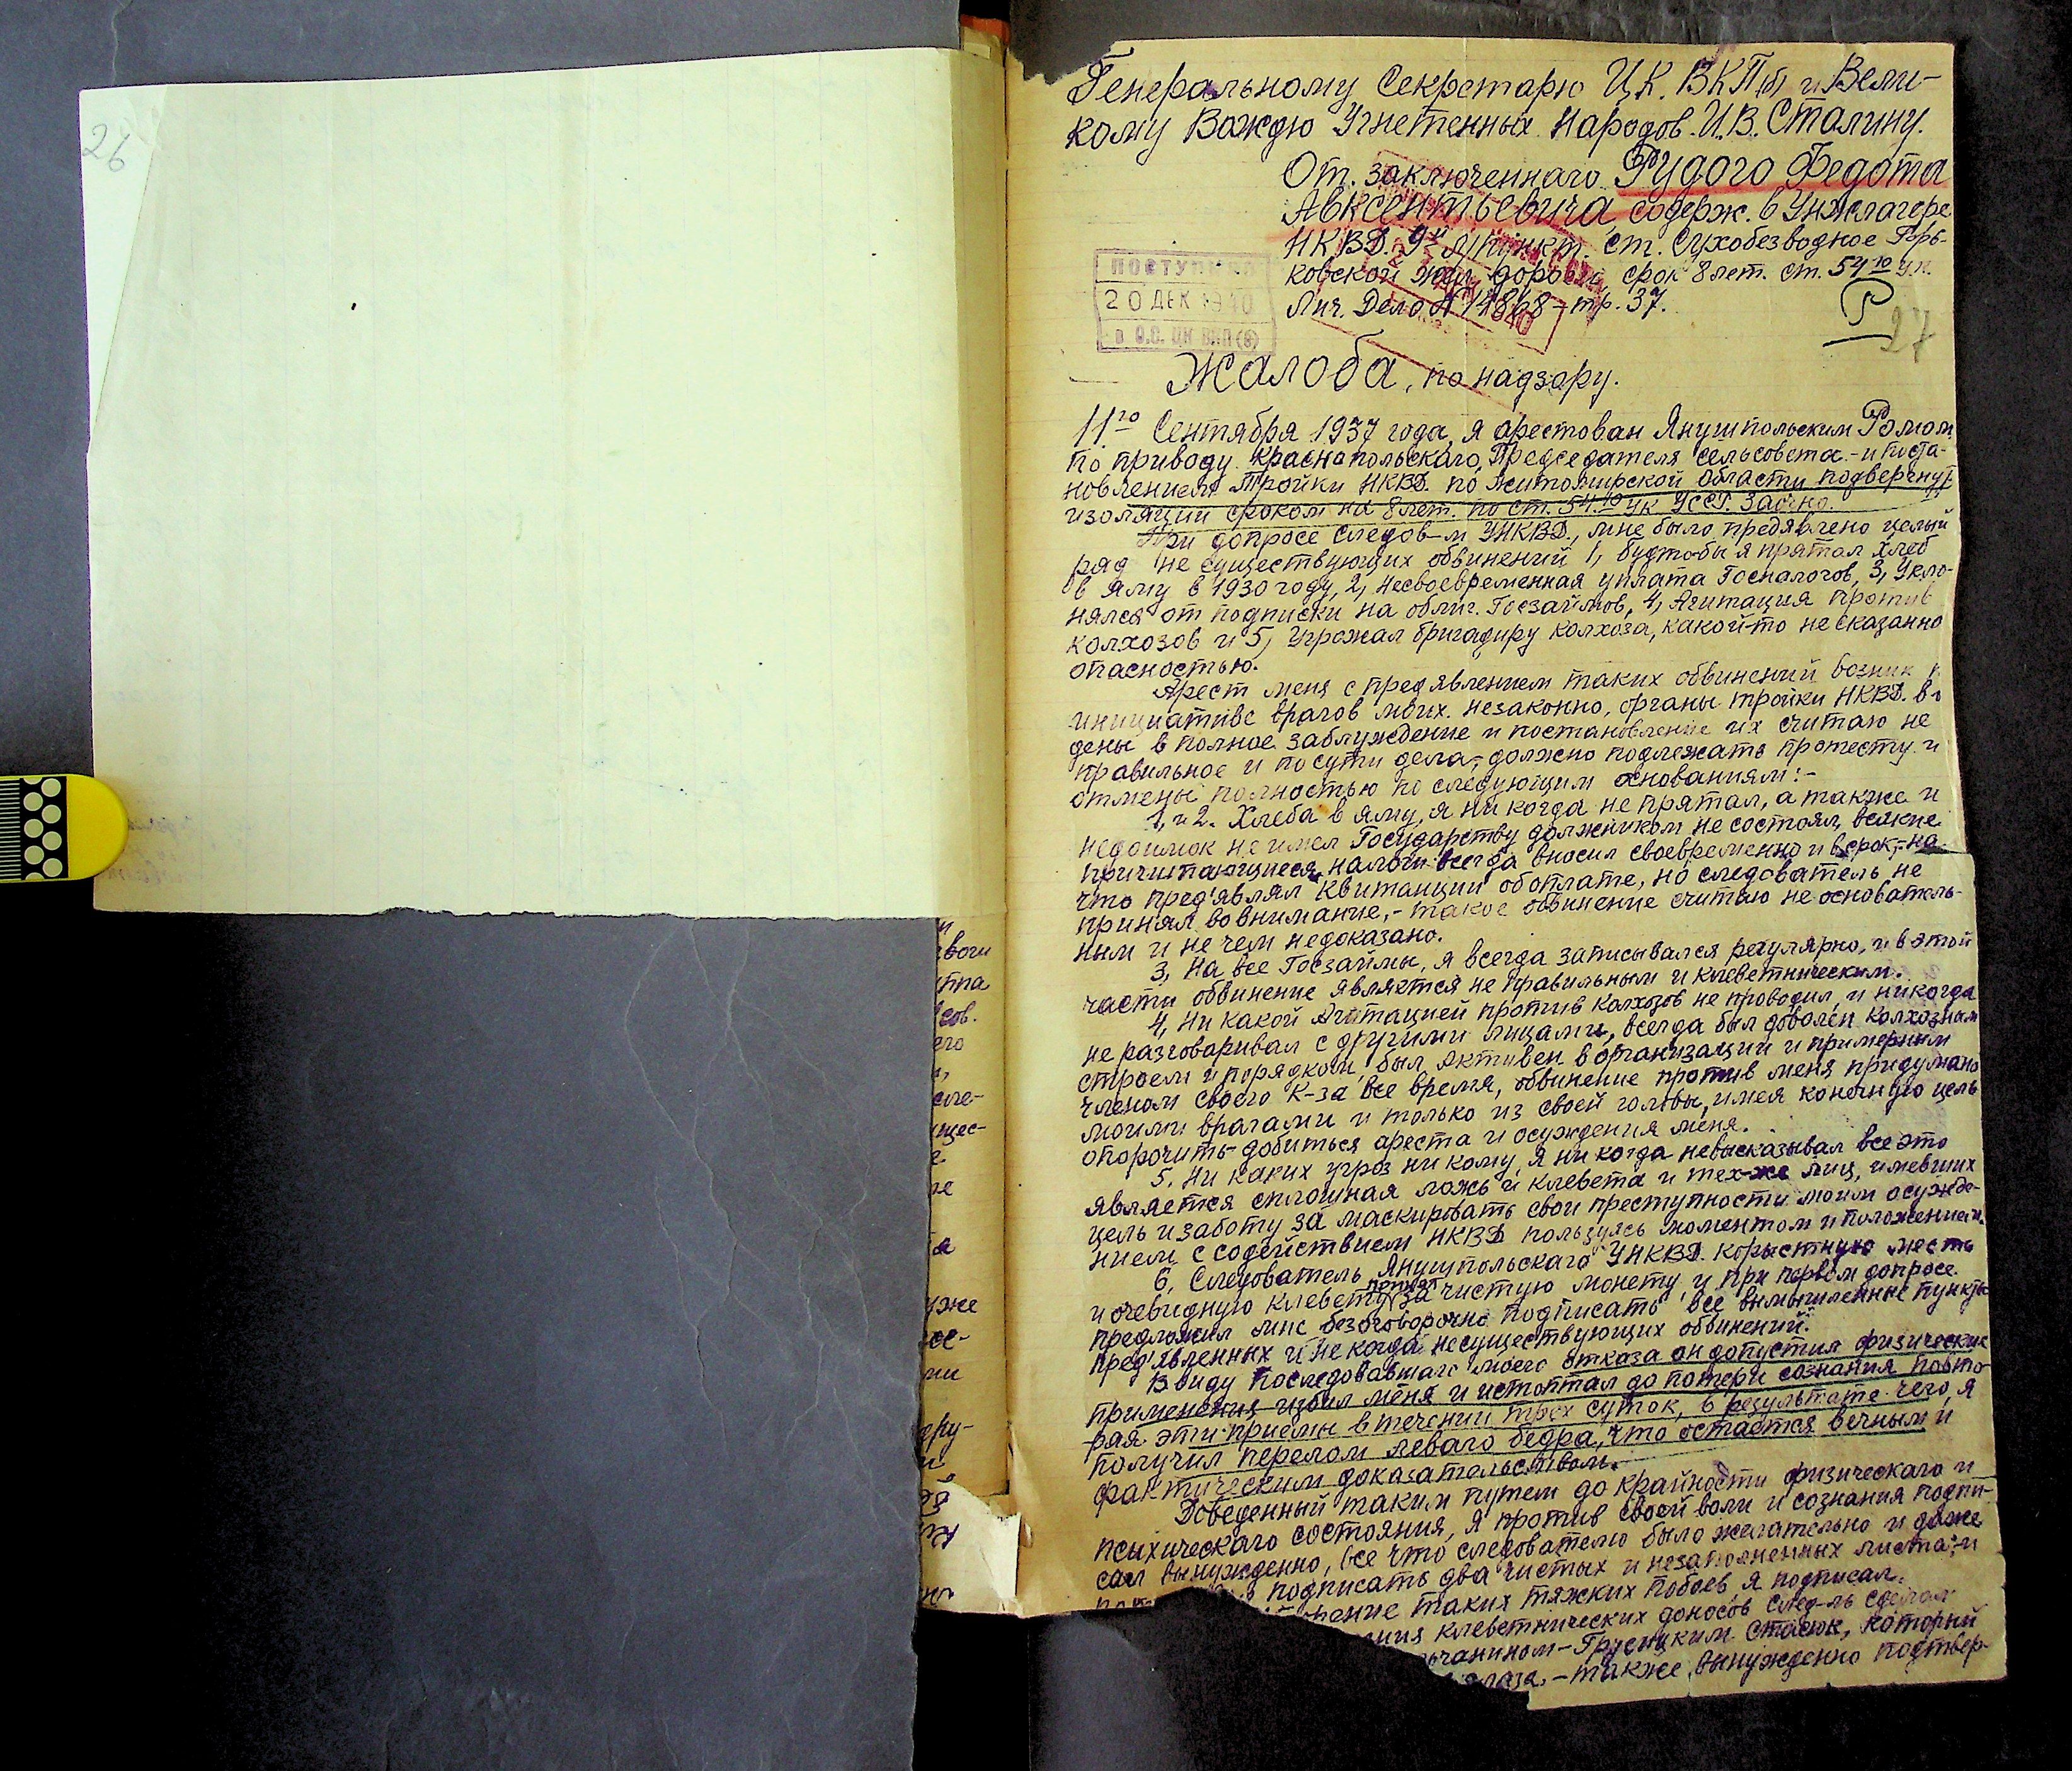 26
Генеральному Секретарю Ц.К. ВКП(б) и Вели-
кому Вождю Угнетенных Народов. И.В. Сталину.
От. заключеннаго Рудого Федота
Авксентьевича, содерж. в Унжлагере
НКВД. 9й л/пункт. ст. Сухобезводное Горь-
ковской жел. дороги, срок 8 лет. ст. 54 10 ук.
Лич. Дело № 14868 – тр. 37.
ПОСТУПИЛО
20 ДЕК 1940
в О.С. ЦК ВКП(б)
27
Жалоба, по надзору.
11го Сентября 1937 года, я арестован Янушпольским Ромом,
по приводу Краснопольскаго, Председателя сельсовета - и поста-
новлением Тройки НКВД. по Житомирской области подвергнут
изоляции сроком на 8 лет. по ст. 54.10 ук УССР. Заочно.
При допросе следов-м УНКВД., мне было предявлено целый
ряд не существующих обвинений 1, будто-бы я прятал хлеб
в яму в 1930 году, 2, несвоевременная уплата Госналогов, 3, Укло-
нялся от подписки на облиг. Госзаймов, 4, Агитация против
колхозов и 5, Угрожал бригадиру колхоза, какой-то несказанно
опасностью.
Арест меня с предявлением таких обвинений возник
инициативе врагов моих. незаконно, органы тройки НКВД. вв
дены в полное заблуждение и постановление их считаю не
правильное и по сути дела, должно подлежать протесту и
отмены полностью по следующим основаниям:-
1, и 2. Хлеба в яму, я никогда не прятал, а также и
недоимок не имел Государству должником не состоял, всякие
причитающиеся, налоги всегда вносил своевременно и в срок, - на
что пред'являл квитанции об оплате, но следователь не
принял во внимание, - такое обвинение считаю не основатель-
ным и не чем недоказано.
3, На все Госзаймы, я всегда записывался регулярно, и в этой
части обвинение является не правильным и клеветническим.
4, Ни какой Агитацией против колхозов не проводил, и никогда
не разговаривал с другими лицами, всегда был доволен колхозным
строем и порядком, был активен в организации и примерным
членом своего К-за все время, обвинение против меня придумано
моими врагами и только из своей головы, имея конечную цель
опорочить - добиться ареста и осуждения меня.
5. Ни каких угроз ни кому, я ни когда невысказывал все это
является сплошная ложь и клевета и тех-же лиц, имевших
цель и заботу за маскировать свои преступности моим осужде-
нием с содействием НКВД пользуясь моментом и положением.
6, Следователь Янушпольскаго УНКВД. корыстную месть
и очевидную клевету принял за чистую монету, и при первом допросе
предложил мне безоговорочно подписать все вымышленные пункты
пред'явленных и не когда несуществующих обвинений.
В виду последовавшаго моего отказа он допустил физические
применения, избил меня и истоптал до потери сознания повто-
ряя эти приемы в течении трех суток, в результате чего, я
получил перелом леваго бедра, что остается вечным и
фактическим доказательством.
Доведенный таким путем до крайности физическаго и
психическаго состояния, я против своей воли и сознания подпи-
сал вынужденно, все что следователю было желательно и даже
подписать два чистых и незаполненных листа, - и
таких тяжких побоев я подписал.
клеветнических доносов след-ль сделал
Грусицким Стасюк, который
глаза, - также вынужденно подтвер-